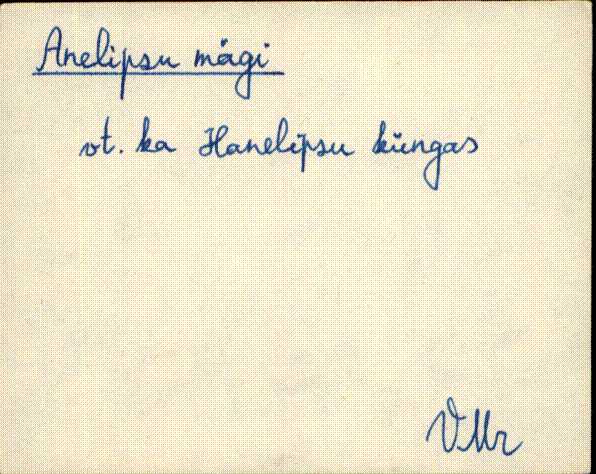 Anelipsu mägi
vt. ka Hanelipsu küngas
VMr